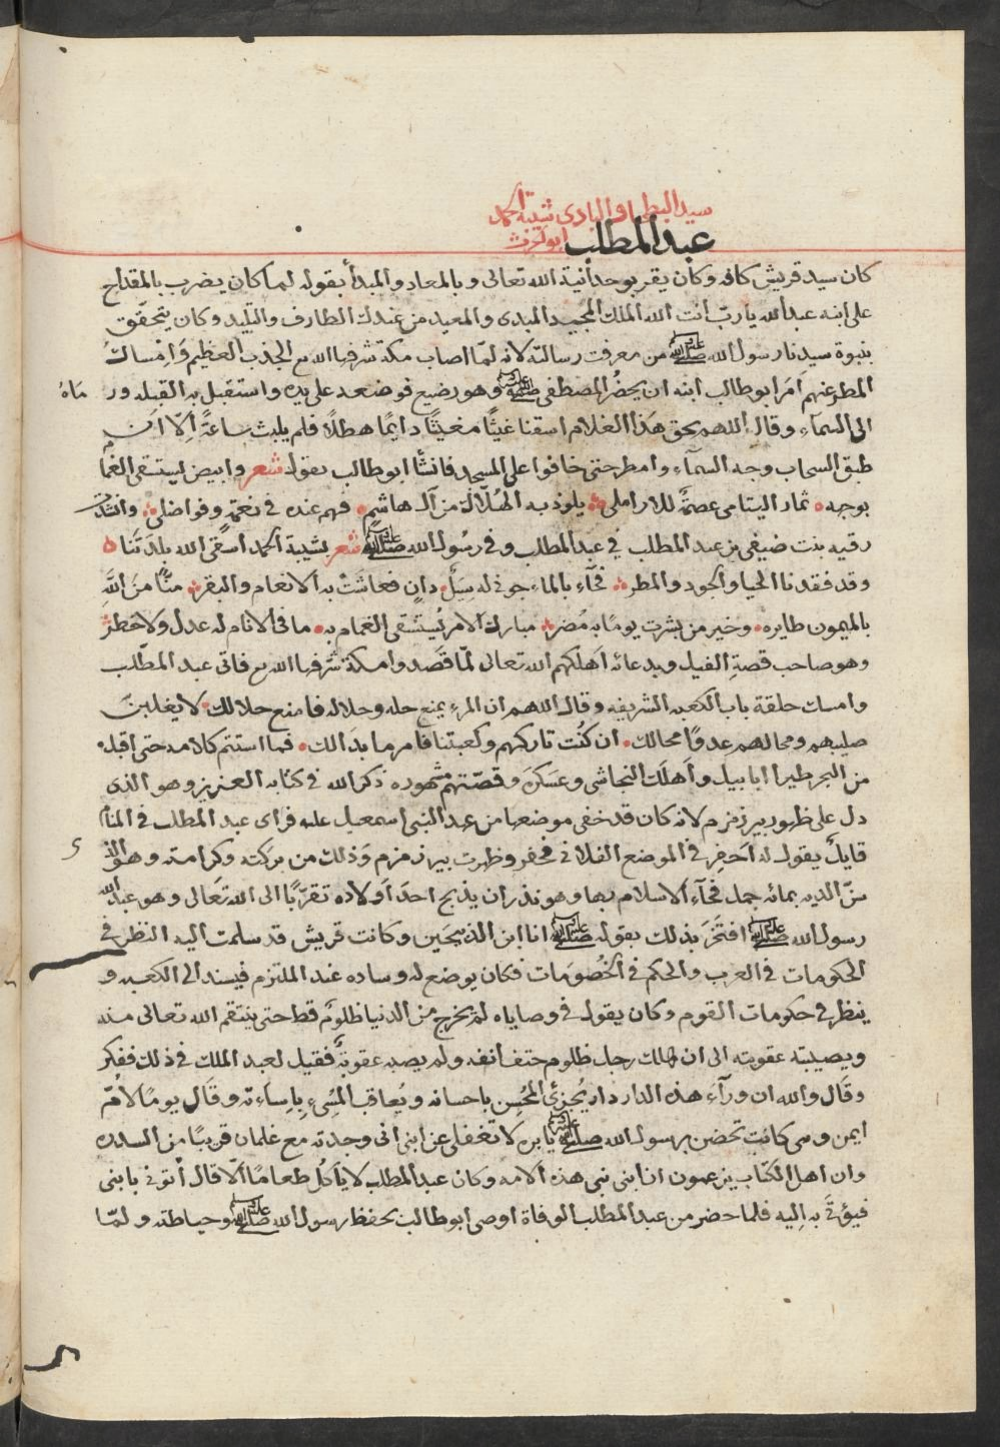 سيد البطحاء والبادى شيبة الحمد
عبد المطلب ابو الحرث
كان سيد قريش كافه وكان يقر بوحدانية الله تعالى وبالمعاد والمبدأ بقوله لما كان يضرب بالمقداح
على ابنه عبد الله يا رب انت الله الملك المجيد المبدى والمعيد من عندك الطارف والتليد وكان يتحقق
بنبوة سيدنا رسول الله صلى الله عليه من معرفت رسالته لانه لما اصاب مكة شرفها الله مع الجذب العظيم وامساك
المطر عنهم امر ابو طالب ابنه ان يحضر المصطفى صلى الله عليه وهو رضيع فوضعه على يده واستقبل به القبله ور ماه
الى السماء وقال اللهم بحق هذا الغلام اسقنا غيثًا مغيثًا دايمًا هطلًا فلم يلبث ساعةً الا ان
طبق السحاب وجه السماء وامطر حتى خافوا على المسجد فانشا ابو طالب يقول شعر وابيض ليستسقى الغمام
بوجهه ثمار اليتامى عصمة للاراملى يلوذ به الهلاك من آل هاشم فهم عنده فى نعمة وفواضلى وانشدت
رقيه بنت ضيفى بن عبد المطلب في عبد المطلب وفى رسول الله صلى الله عليه شعر بشيبة الحمد اسقى الله بلدتنا
وقد فقدنا الحيا والجود والمطر فجآء بالماء جونى له سبل دان فعاشت به الانعام والبقر منًّا من الله
بالميمون طايره وخير من بشرت يومًا به مضر مبارك الامر يستسقى الغمام به ما فى الانام له عدل ولا خطر
وهو صاحب قصة الفيل وبدعائه اهلكهم الله تعالى لما قصدوا مكة شرفها الله مع فاتى عبد المطلب
وامسك حلقة باب الكعبه الشريفه وقال اللهم ان المرء يمنع حله وحلاله فامنع حلالك لا يغلبن
صليبهم ومحالهم عدوًا محالك ان كنت تاركهم وكعبتنا فامر ما بدالك فما استتم كلامه حتى اقبل
من البحر طيرا ابابيل واهلك النجاشى وعسكره وقصتهم مشهوره ذكر الله فى كتابه العزيز وهو الذى
دل على ظهور بير زمزم لانه كان قد خفى موضعها من عهد النبى اسمعيل عليه فراى عبد المطلب فى المنام
قايلًا يقول له احفر فى الموضع الفلانى فحفر وظهرت بير زمزم وذلك من بركته وكرامته وهو الذى
سن الديه بمائه جمل فجآء الاسلام بها وهو نذر ان يذبح احد اولاده تقربًا الى الله تعالى وهو عبد الله
رسول الله صلى الله عليه افتخر بذلك بقوله صلى الله عليه انا ابن الذبيحين وكانت قريش قد سلمت اليه النظر فى
الحكومات فى العرب والحكم فى الخصومات فكان يوضع له وساده عند الملتزم فيسند الى الكعبه و
ينظر فى حكومات القوم وكان يقول فى وصاياه لم يخرج من الدنيا ظلوم قط حتى ينتقم الله تعالى منه
ويصيبته عقوبته الى ان هلك رجل ظلوم حتف انفه ولم يصبه عقوبة فقيل لعبد الملك فى ذلك ففكر
وقال والله ان ورآء هذه الدار دار يجزئ المحسن باحسانه ويعاقب المسىء باساءته وقال يومًا لام
ايمن وهى كانت تحضن برسول الله صلى الله عليه يا بره لا تغفلى عن ابنى انى وجدته مع غلمان قريبًا من السدره
وان اهل الكتاب يزعمون ان ابنى نبى هذه الامه وكان عبد المطلب لا ياكل طعامًا الا قال أتونى بابنى
فيؤتى به اليه فلما حضر من عبد المطلب الوفاة اوصى ابو طالب بحفظ رسول الله صلى الله عليه وحياطته ولما